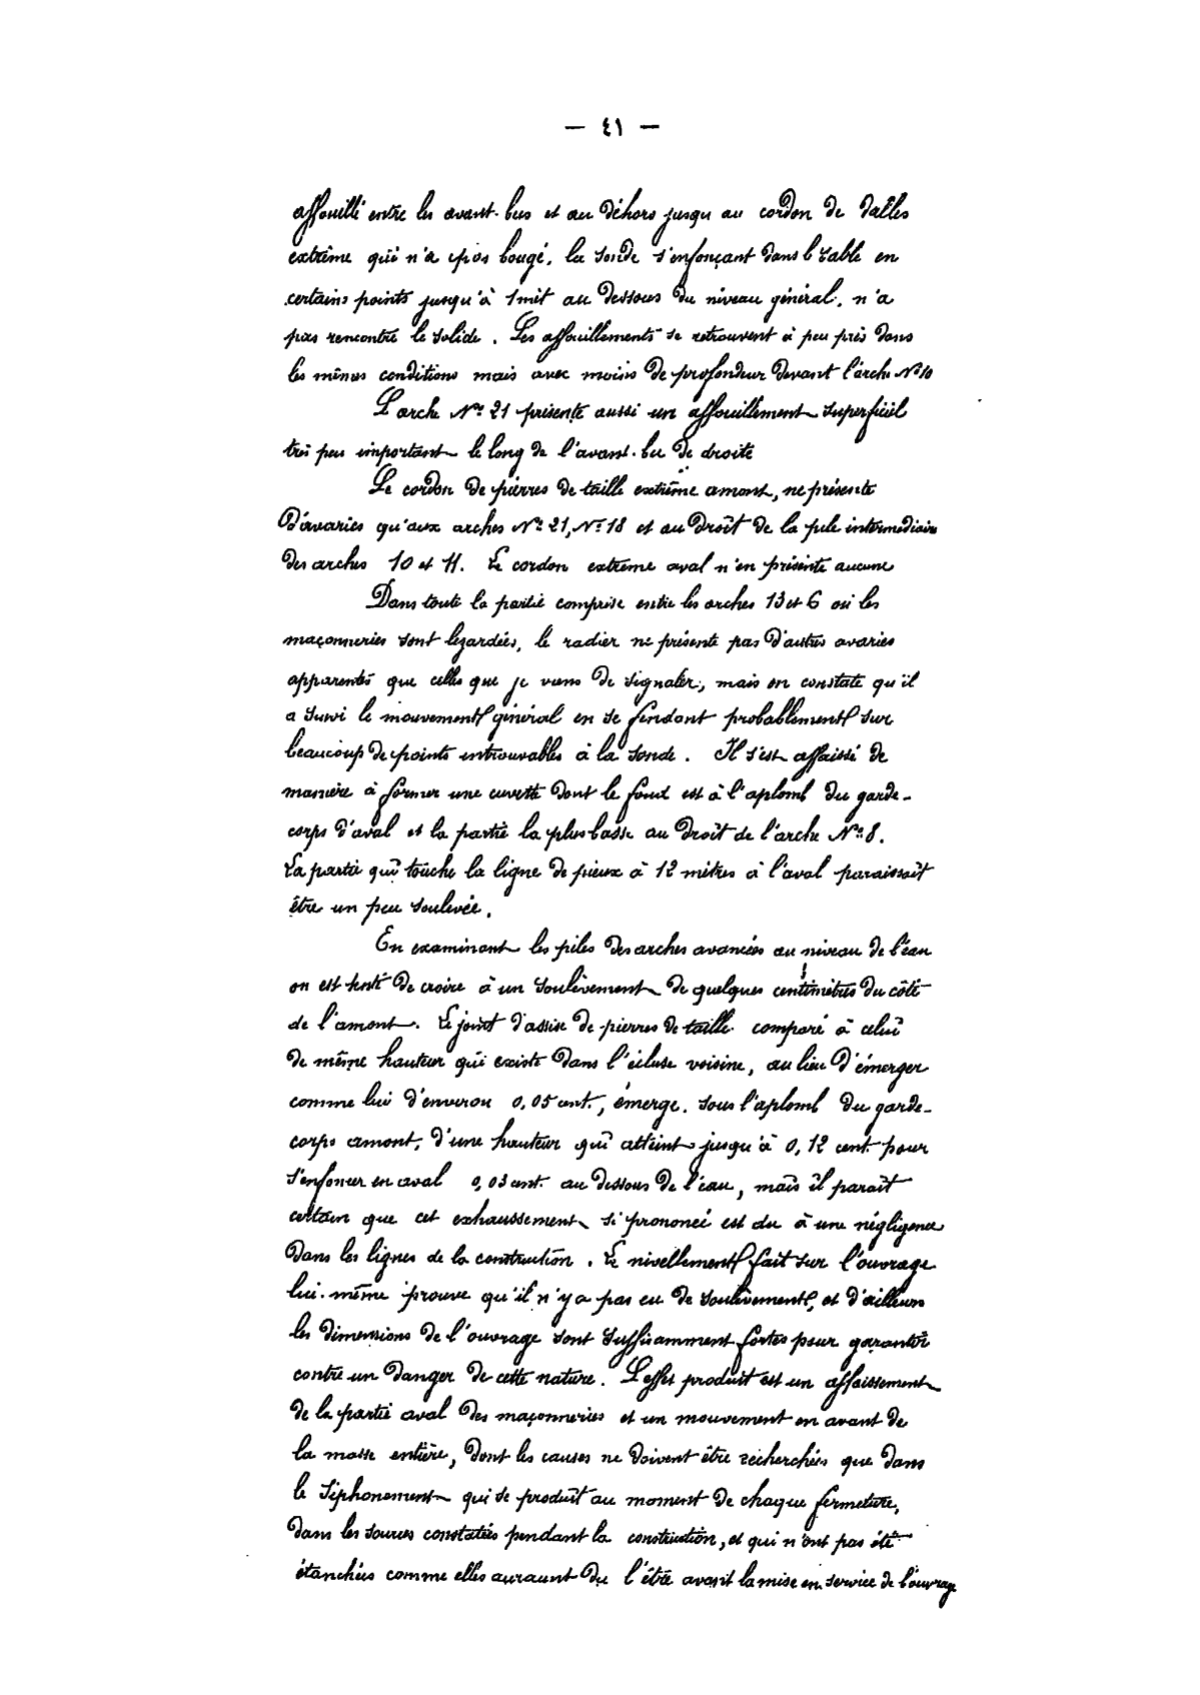 — ٤١ —
affouillé entre les avant-bus et au déhors jusqu au cordon de dalles
extrême qui n'a pas bougé, la sonde s'enfonçant dans l sable en
certains points jusqu'à 1 mèt au dessous du niveau général, n'a
pas rencontré le solide. Les affouillements se retrouvent à peu près dans
les mêmes conditions mais avec moins de profondeur devant l'arche N° 10
L'arche N° 21 présente aussi un affouillement superficiel
très peu important le long de l'avant-bec de droite
Le cordon de pierres de taille extrême amont, ne présente
d'avaries qu'aux arches N° 21, N° 18 et au droit de la pile intermédiaire
des arches 10 et 11. Le cordon extrême aval n'en présente aucune
Dans toute la partie comprise entre les arches 13 et 6 où les
maçonneries sont lezardées, le radier ne présente pas d'autres avaries
apparentes que celles que je viens de signaler, mais on constate qu'il
a suivi le mouvement général en se fendant probablement sur
beaucoup de points introuvables à la sonde. Il s'est affaissé de
manière à former une cuvette dont le fond est à l'aplomb du garde-
corps d'aval et la partie la plus basse au droit de l'arche N° 8.
La partie qui touche la ligne de pieux à 12 mètres à l'aval paraissait
être un peu soulevée.
En examinant les piles des arches avancées au niveau de l'éau
on est tenté de croire à un soulèvement de quelques centimètres du côté
de l'amont. Le joint d'assise de pierres de taille comparé à celui
de même hauteur qui existe dans l'écluse voisine, au lieu d'émerger
comme lui d'environ 0,05 cent., émerge. sous l'aplomb du garde-
corps amont, d'une hauteur qui atteint jusqu'à 0,12 cent. pour
s'enfoncer en aval 0,03 cent. au dessous de l'eau, mais il parait
certain que cet exhaussement si prononcé est du à une négligence
dans les lignes de la construction. Le nivellement fait sur l'ouvrage
lui-même prouve qu'il n'y a pas eu de soulèvement, et d'ailleurs
les dimensions de l'ouvrage sont suffisamment fortes pour garantir
contre un danger de cette nature. L'effet produit est un affaissement
de la partie aval des maçonneries et un mouvement en avant de
la masse entière, dont les causes ne doivent être recherchées que dans
le siphonement qui se produit au moment de chaque fermeture,
dans les sources constatées pendant la construction, et qui n'ont pas été
étanchées comme elles auraunt du l'être avant la mise en service de l'ouvrage